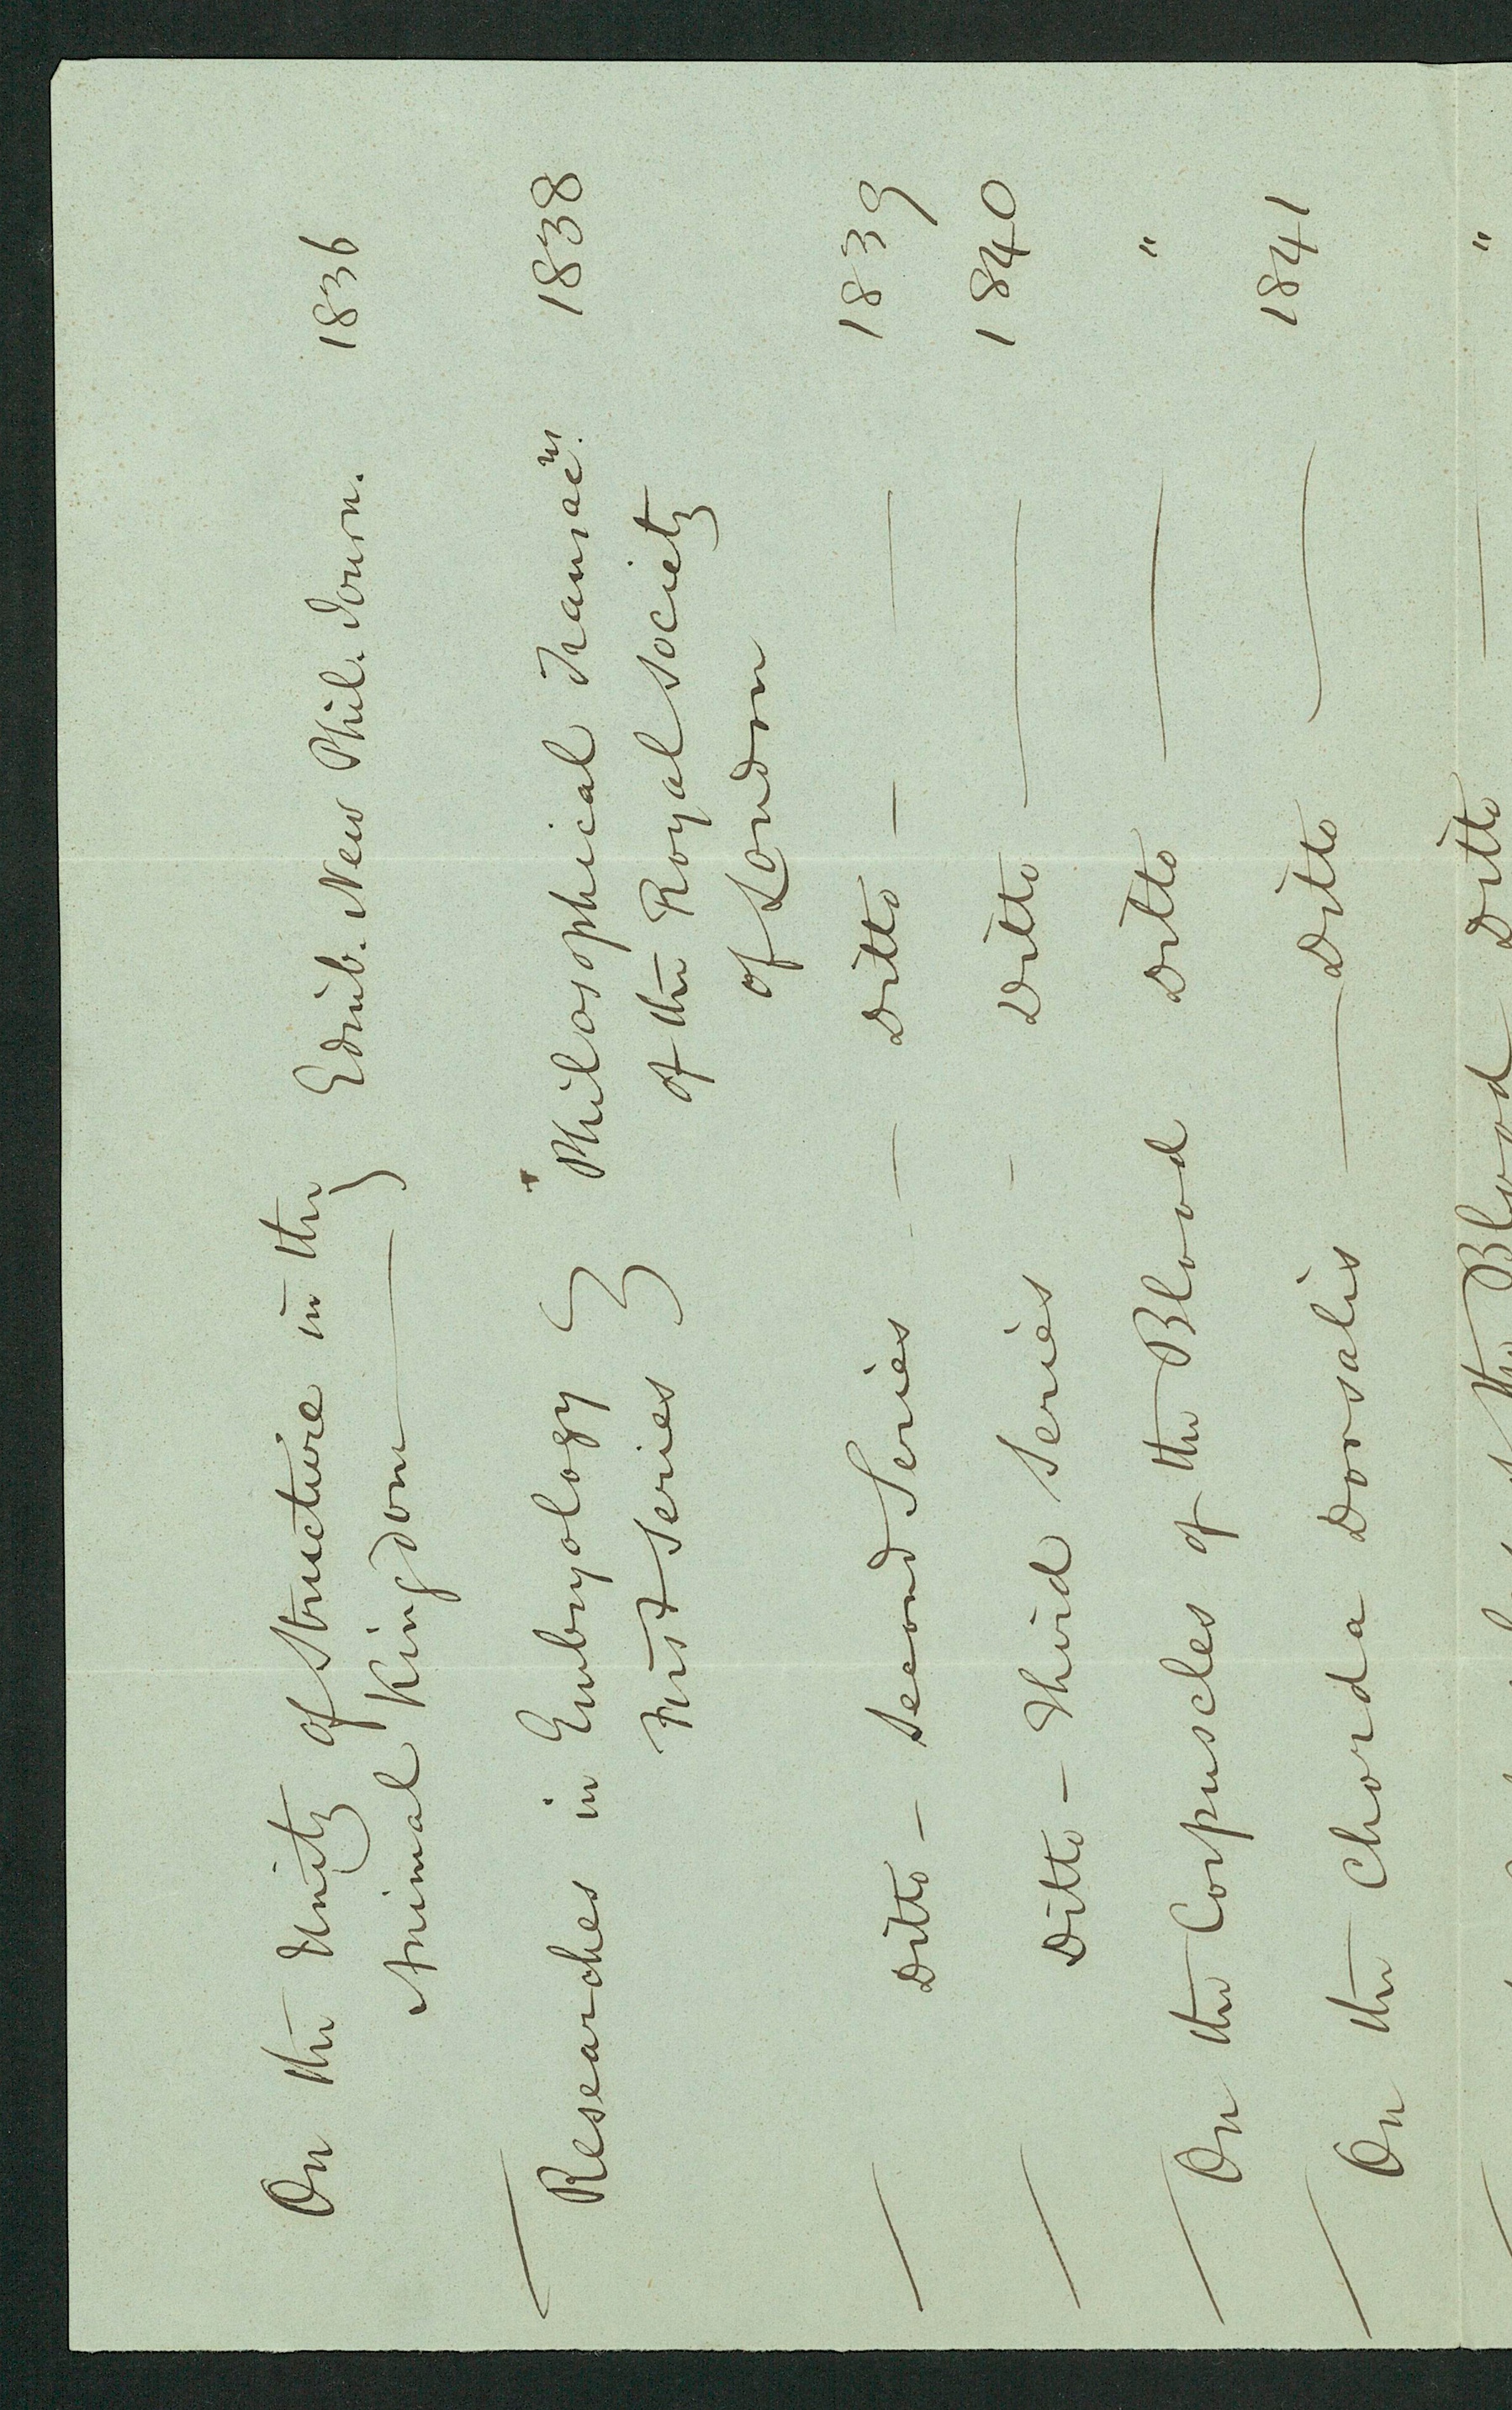 On the Unity of Structure in the } Edinb. New Phil. Journ. 1836
Animal Kingdom —
Researches in Embryology } Philosophical Transacns. 1838
First Series
of the Royal Society
of London
Ditto - Second Series - - Ditto - — 1839
Ditto - Third Series - Ditto — 1840
On the Corpuscles of the Blood Ditto — "
On the Chorda dorsalis — Ditto — 1841
the Blood Ditto — "